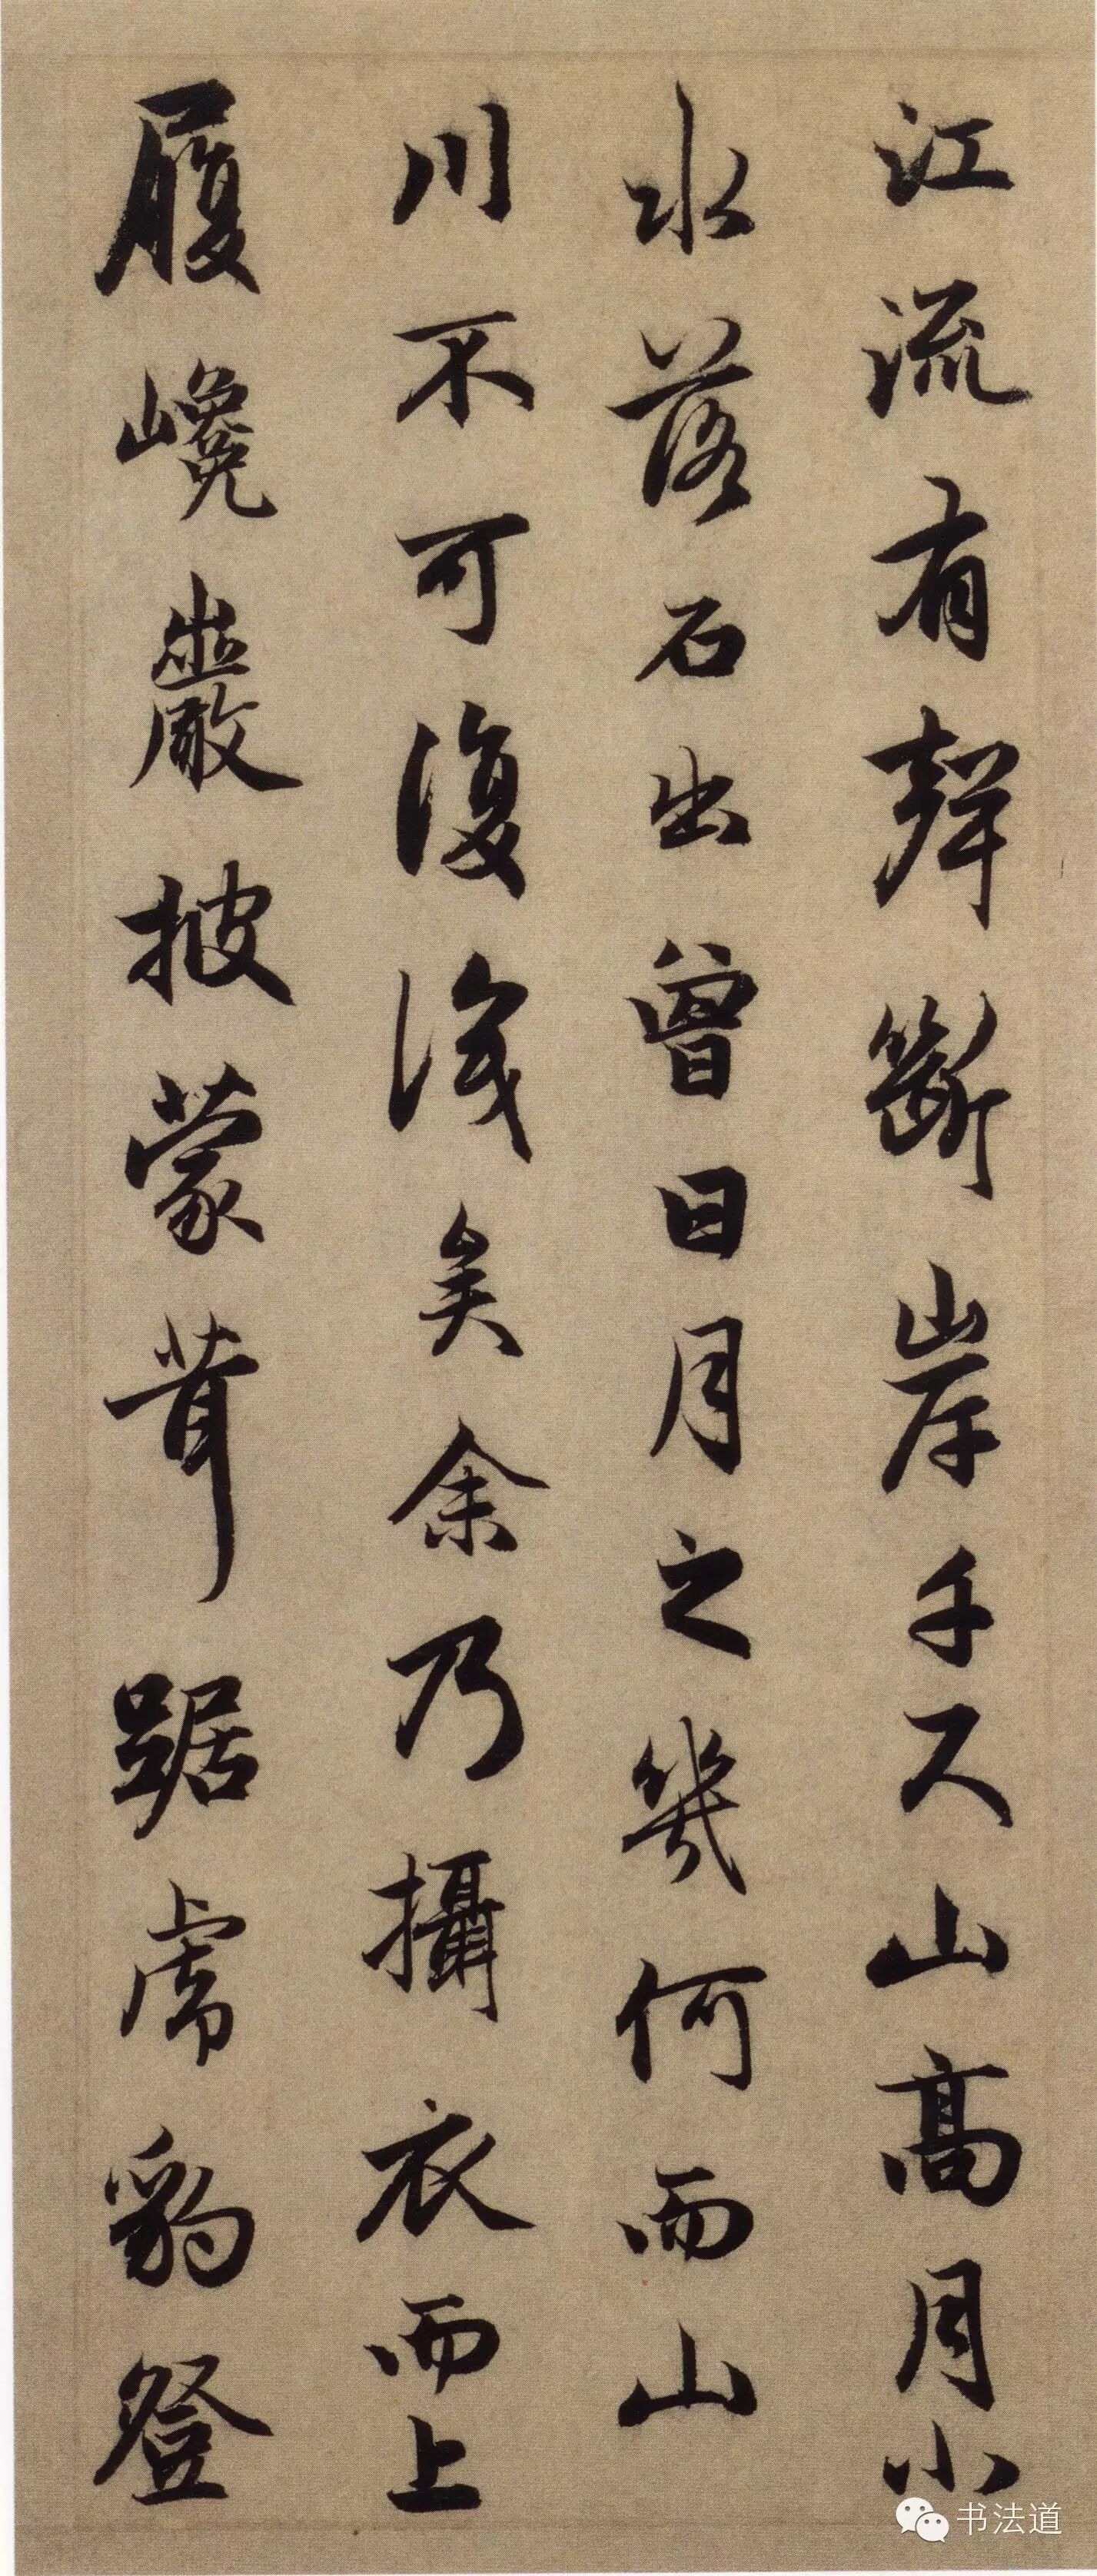 江流有聲斷岸千尺山高月小
水落石出曾日月之幾何而山
川不可復識矣余乃攝衣而上
履巉巖披蒙茸踞虎豹登
书法道